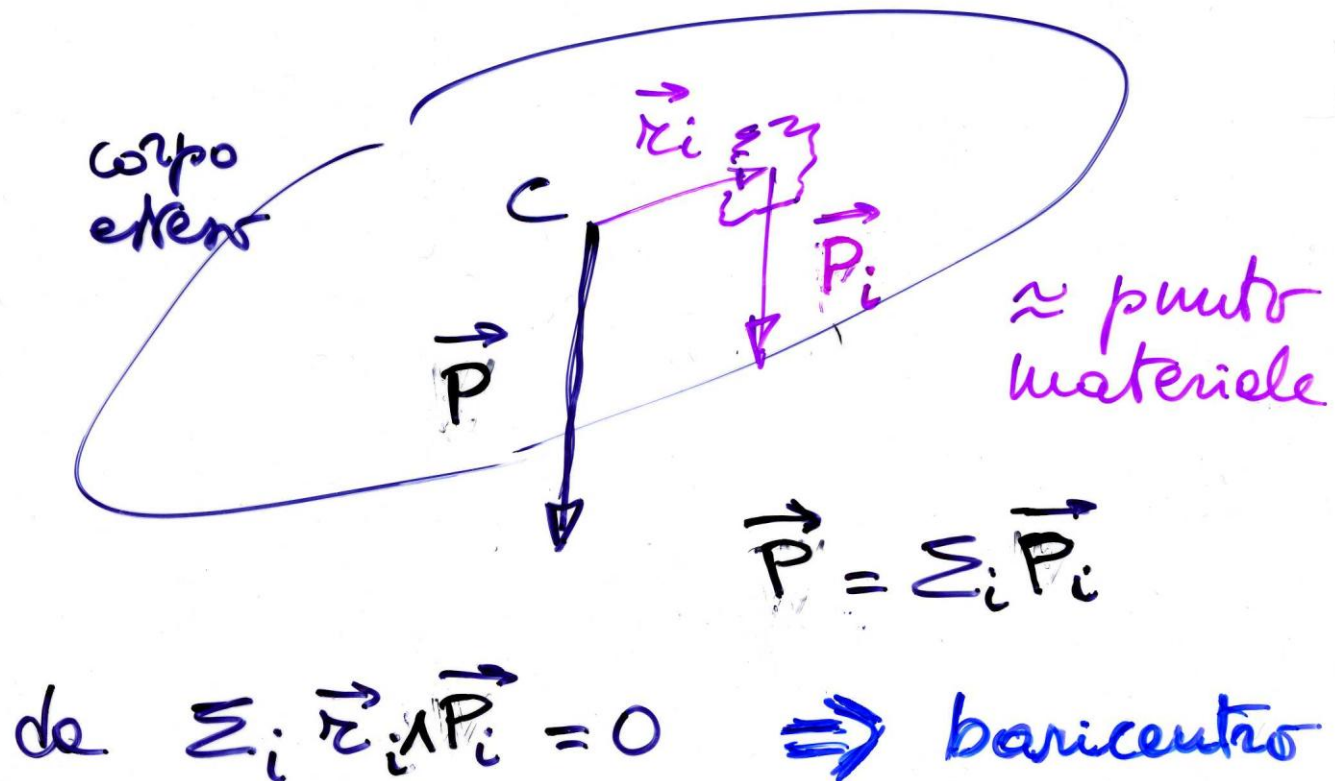 corpo
esteso
C
$\vec{r_i}$
$\vec{P_i}$
$\vec{P}$
≈ punto
materiale
$\vec{P} = \Sigma_i \vec{P_i}$
da $\Sigma_i \vec{r_i} \wedge \vec{P_i} = 0$ ⇒ baricentro